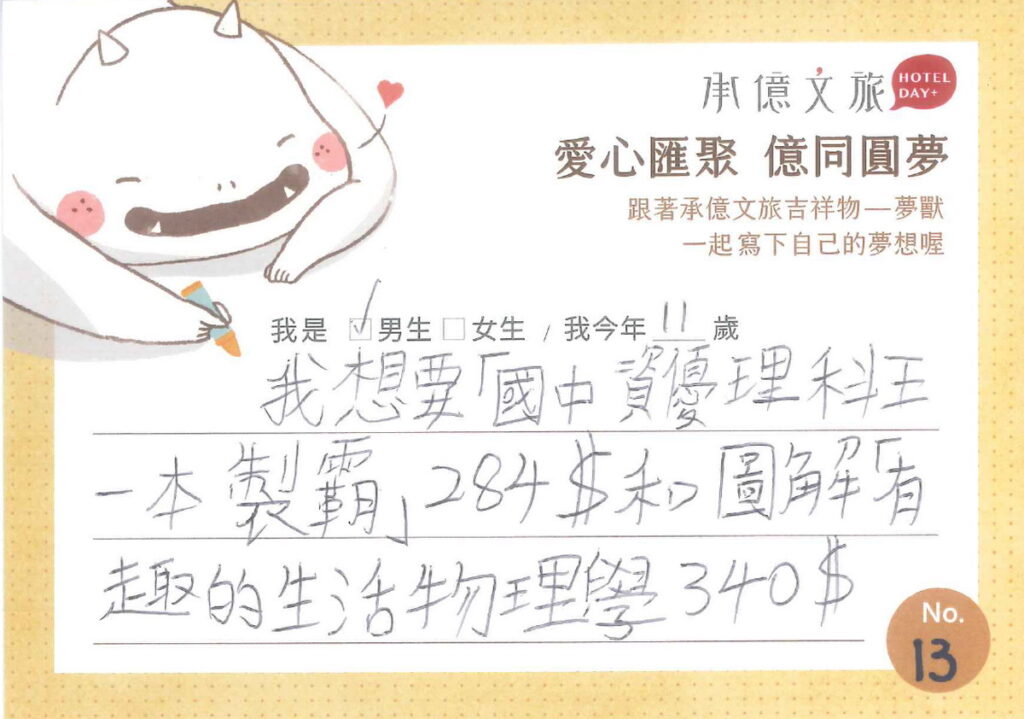 承億文旅
HOTEL
DAY+
愛心匯聚 億同圓夢
跟著承億文旅吉祥物—夢獸
一起寫下自己的夢想喔
我是 ☑男生 □女生 / 我今年 11 歲
我想要「國中資優理科王
一本製霸」284$和圖解「有
趣的生活物理學340$
No.
13